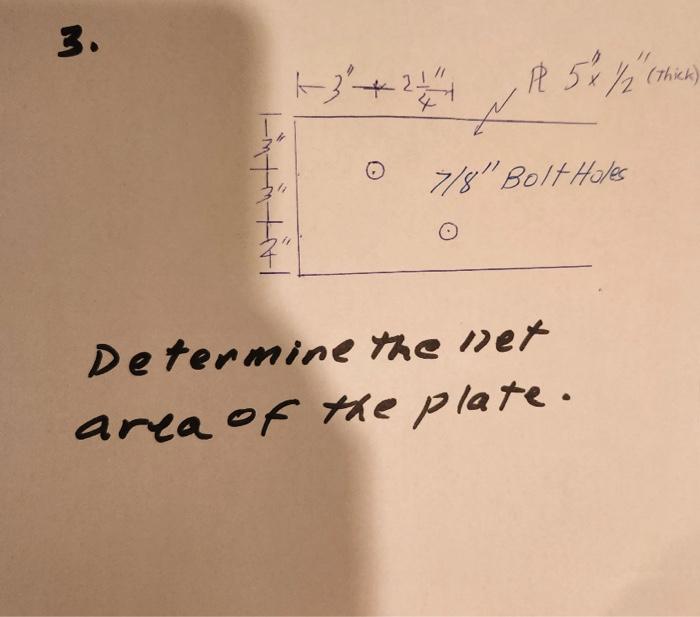 3.
3" 2 1/4" PL 5" x 1/2" (Thick)
3"
7/8" Bolt Holes
3"
2"
Determine the net
area of the plate.